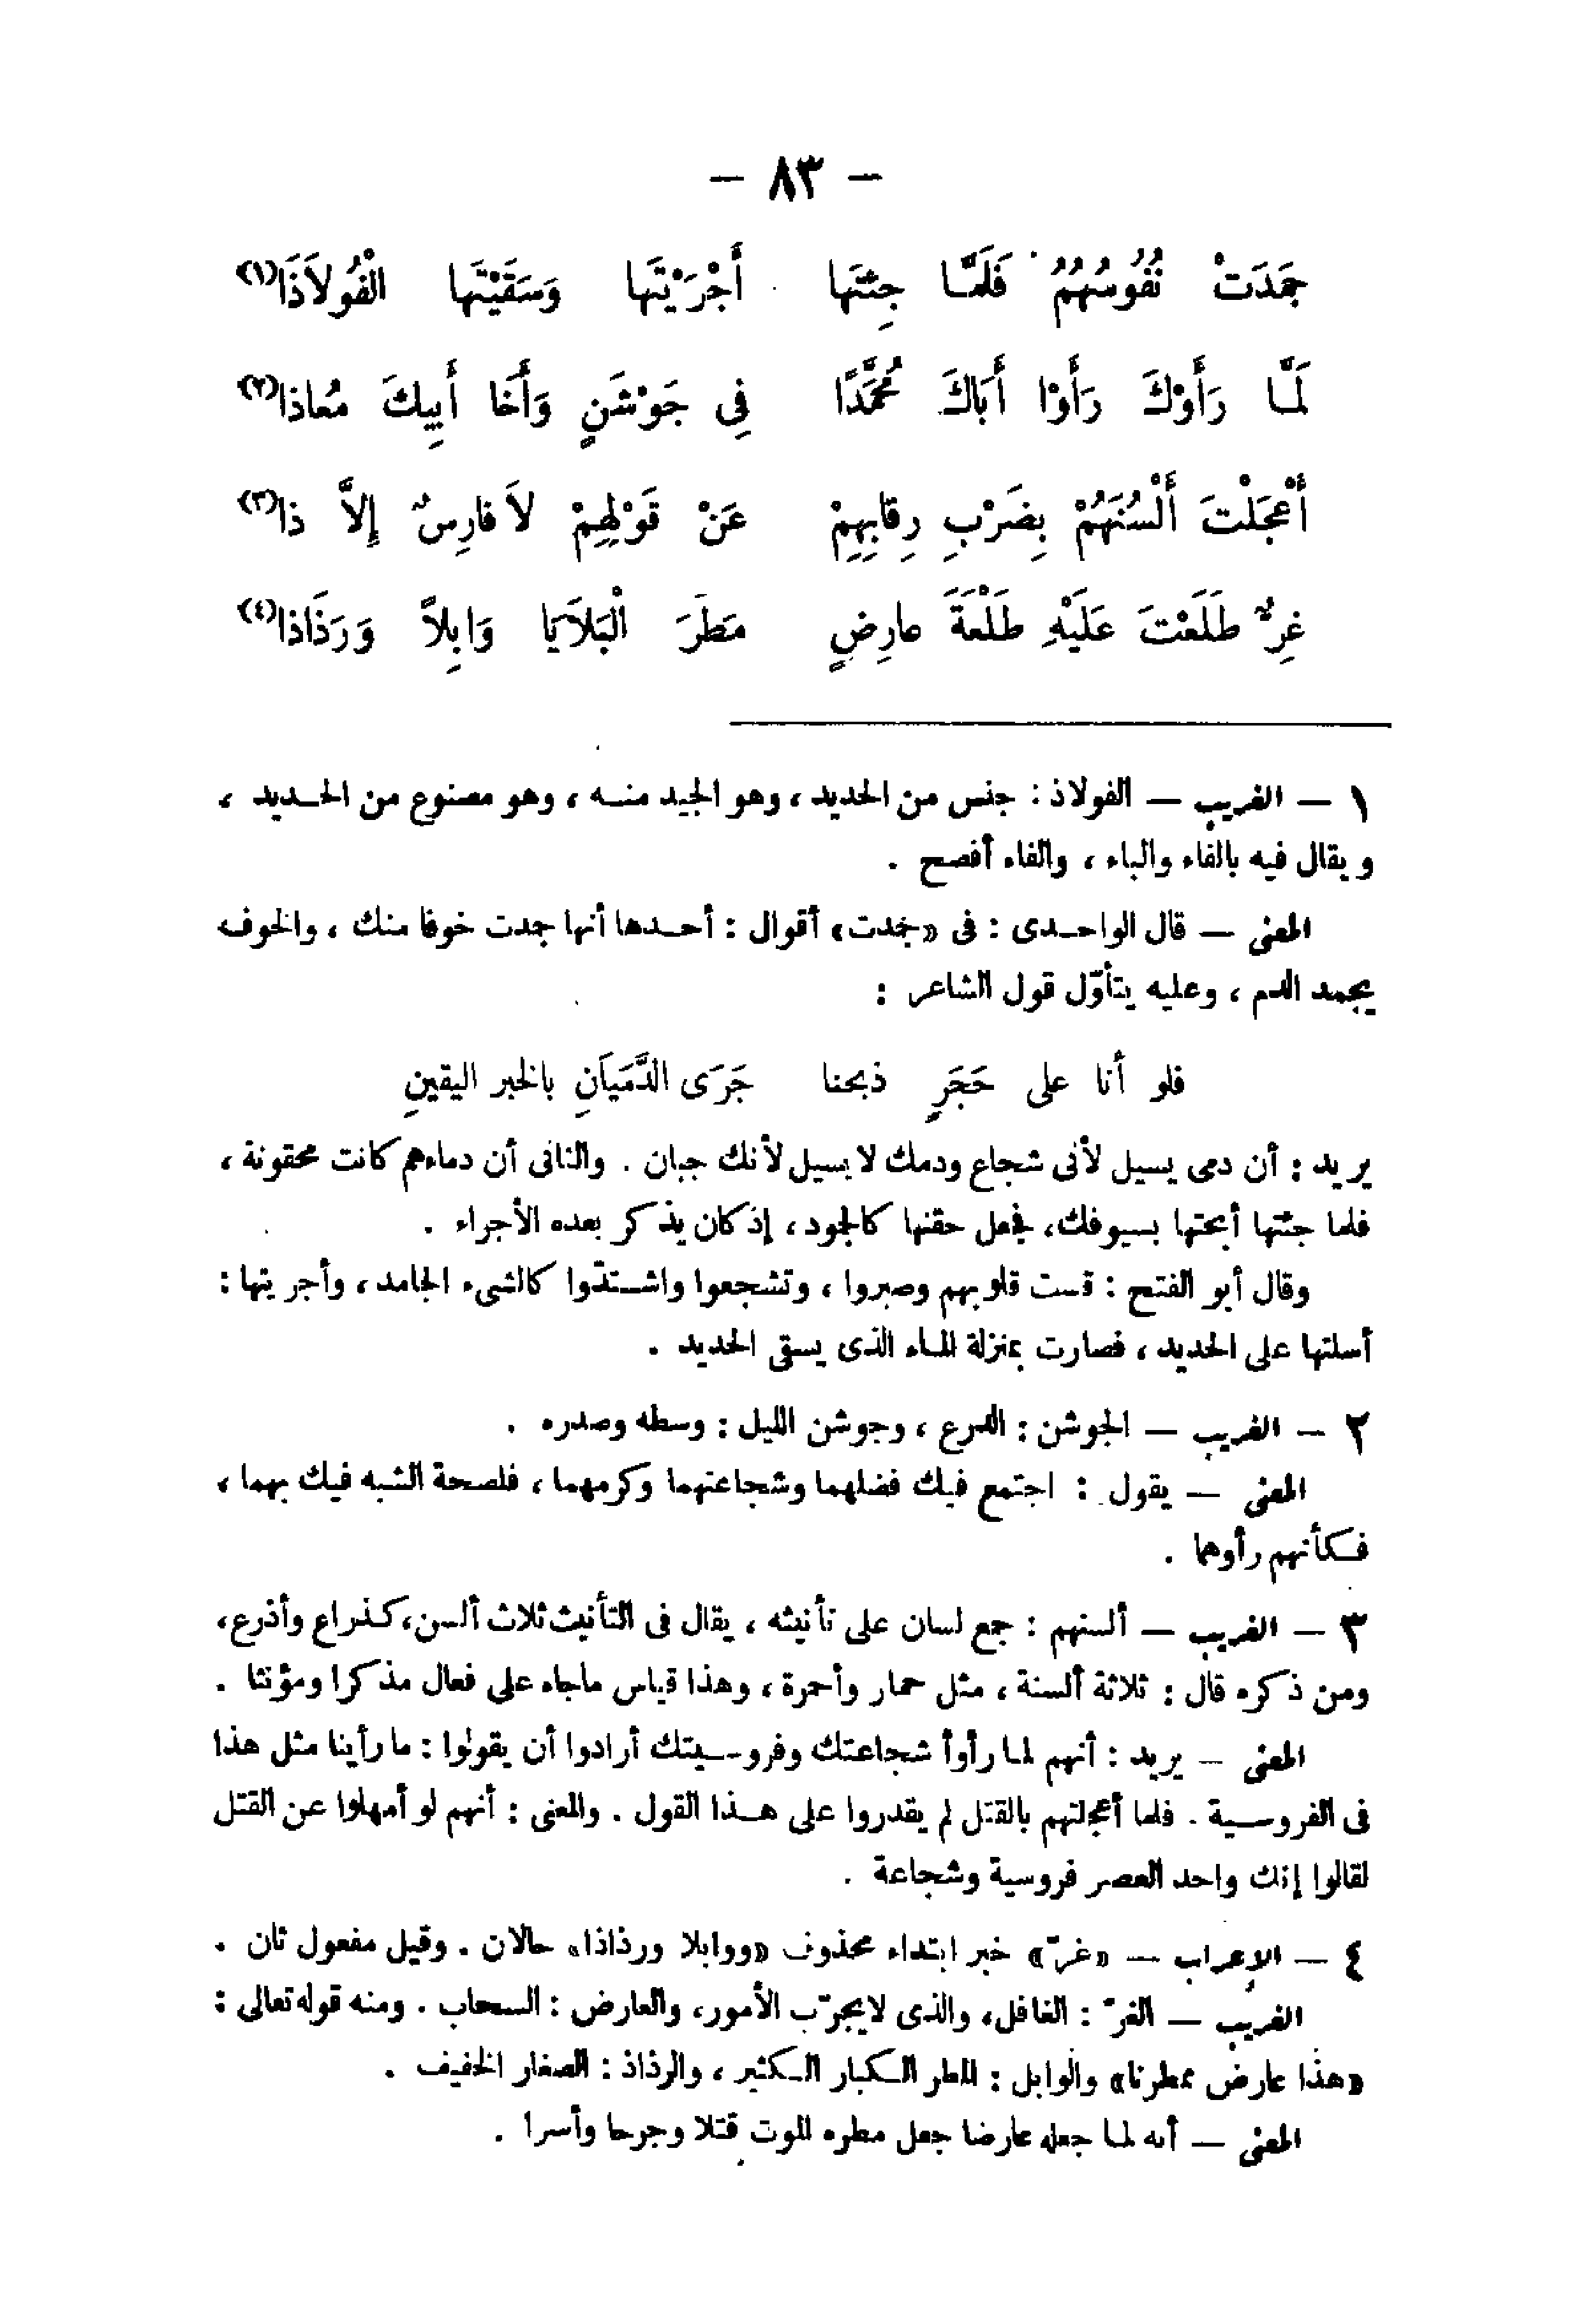 — ٨٣ —
جَمَدَتْ نُفُوسُهُمُ فَلَمَّا جِئْتَهَا أَجْرَيْتَهَا وَسَقَيْتَهَا الْفُولَاذَا(١)
لَمَّا رَأَوْكَ رَأَوْا أَبَاكَ مُحَمَّدًا فِى جَوْشَنٍ وَأَخَا أَبِيكَ مُعاذا(٢)
أَعْجَلْتَ أَلْسُنَهُمْ بِضَرْبِ رِقابِهِمْ عَنْ قَوْلِهِمْ لاَ فارِسٌ إِلاَّ ذا(٣)
غِرٌّ طَلَعْتَ عَلَيْهِ طَلْعَةَ عارِضٍ مَطَرَ الْبَلاَيَا وَابِلاً وَرَذَاذا(٤)
١ — الغريب — الفولاذ : جنس من الحديد ، وهو الجيد منه ، وهو مصنوع من الحديد ،
ويقال فيه بالفاء والباء ، والفاء أفصح .
المعنى — قال الواحدى : فى «جمدت» أقوال : أحدها أنها جمدت خوفا منك ، والخوف
يجمد الدم ، وعليه يتأوّل قول الشاعر :
فلو أنا على حَجَرٍ ذبحنا جَرَى الدَّمَيَانِ بالخبر اليقينِ
يريد : أن دمى يسيل لأنى شجاع ودمك لا يسيل لأنك جبان . والثانى أن دماءهم كانت محقونة ،
فلما جئتها أبحتها بسيوفك، فجعل حقنها كالجمود ، إذ كان يذكر بعده الأجراء .
وقال أبو الفتح : قست قلوبهم وصبروا ، وتشجعوا واشتدّوا كالشىء الجامد ، وأجريتها :
أسلتها على الحديد ، فصارت بمنزلة الماء الذى يسقى الحديد .
٢ — الغريب — الجوشن : الدرع ، وجوشن الليل : وسطه وصدره .
المعنى — يقول : اجتمع فيك فضلهما وشجاعتهما وكرمهما ، فلصحة الشبه فيك بهما ،
فكأنهم رأوهما .
٣ — الغريب — ألسنهم : جمع لسان على تأنيثه ، يقال فى التأنيث ثلاث ألسن، كذراع وأذرع،
ومن ذكره قال : ثلاثة ألسنة ، مثل حمار وأحمرة ، وهذا قياس ماجاء على فعال مذكرا ومؤنثا .
المعنى — يريد : أنهم لما رأوأ شجاعتك وفروسيتك أرادوا أن يقولوا : ما رأينا مثل هذا
فى الفروسية . فلما أعجلتهم بالقتل لم يقدروا على هذا القول . والمعنى : أنهم لو أمهلوا عن القتل
لقالوا إنك واحد العصر فروسية وشجاعة .
٤ — الإعراب — «غرّ» خبر ابتداء محذوف «ووابلا ورذاذا» حالان . وقيل مفعول ثان .
الغريب — الغرّ : الغافل، والذى لايجرّب الأمور، والعارض : السحاب . ومنه قوله تعالى :
«هذا عارض ممطرنا» والوابل : المطر الكبار الكثير ، والرذاذ : الصغار الخفيف .
المعنى — أنه لما جعله عارضا جعل مطره الموت قتلا وجرحا وأسرا .